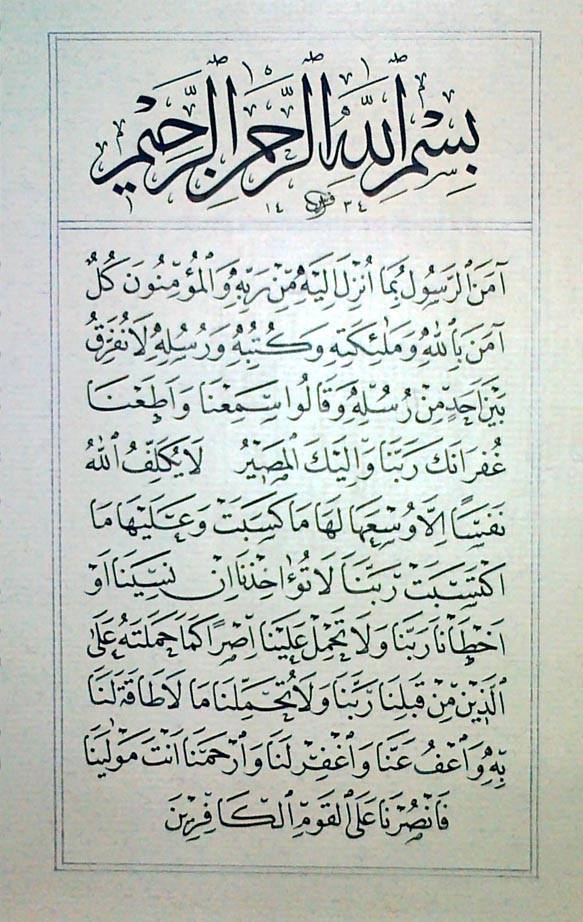 بِسْمِ اللّٰهِ الرَّحْمٰنِ الرَّحِيْمِ
١٤٣٤
آمَنَ ٱلرَّسُولُ بِمَا أُنْزِلَ إِلَيْهِ مِنْ رَبِّهِ وَٱلْمُؤْمِنُونَ كُلٌّ
آمَنَ بِٱللّٰهِ وَمَلٰئِكَتِهِ وَكُتُبِهِ وَرُسُلِهِ لَا نُفَرِّقُ
بَيْنَ اَحَدٍ مِنْ رُسُلِهِ وَقَالُوا سَمِعْنَا وَاَطَعْنَا
غُفْرَانَكَ رَبَّنَا وَاِلَيْكَ الْمَصِيْرُ لَا يُكَلِّفُ ٱللّٰهُ
نَفْسًا اِلَّا وُسْعَهَا لَهَا مَا كَسَبَتْ وَعَلَيْهَا مَا
اكْتَسَبَتْ رَبَّنَا لَا تُؤَاخِذْنَا اِنْ نَسِيْنَا اَوْ
اَخْطَاْنَا رَبَّنَا وَلَا تَحْمِلْ عَلَيْنَا اِصْرًا كَمَا حَمَلْتَهُ عَلَى
الَّذِيْنَ مِنْ قَبْلِنَا رَبَّنَا وَلَا تُحَمِّلْنَا مَا لَا طَاقَةَ لَنَا
بِهِ وَٱعْفُ عَنَّا وَٱغْفِرْ لَنَا وَٱرْحَمْنَا اَنْتَ مَوْلٰينَا
فَانْصُرْنَا عَلَى ٱلْقَوْمِ ٱلْكَافِرِيْنَ